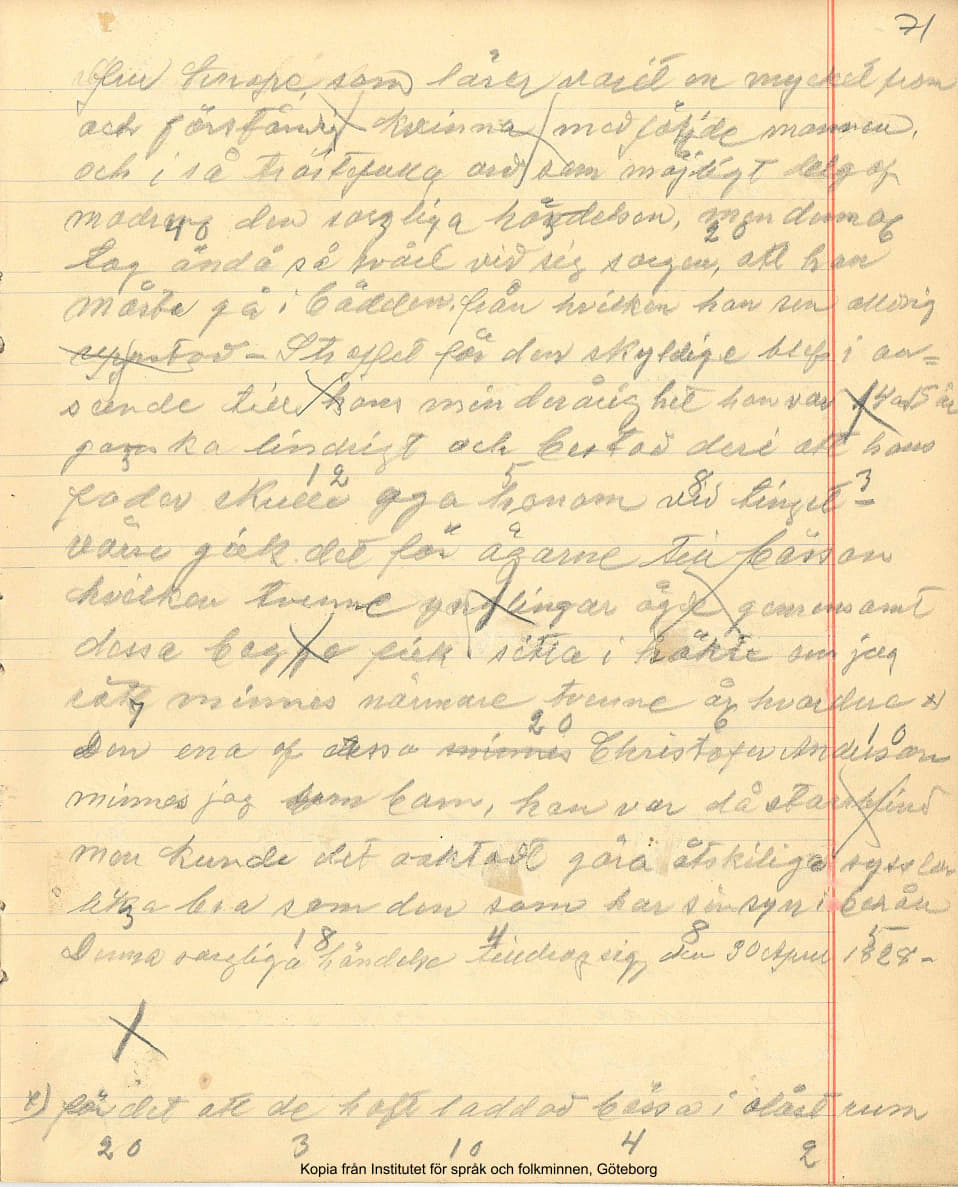 71
fru Sinope, som lärer varit en mycket from
och förståndig kvinna medföljde mannen,
och i så tröstefulla ord som möjligt delgaf
modren den sorgliga händelsen, men denna
tog ändå så svårt vid sig sorgen, att hon
måste gå i bädden från hvilken hon sen aldrig
uppstod – Straffet för den skyldige blef i an=
seende till hans minderårighet han var 14 a 15 år
ganska lindrigt och bestod deri att hans
fader skulle aga honom vid tinget –
värre gick det för ägarne till bössan
hvilken tvenne ynglingar ägde gemensamt
dessa begge fick sitta i häkte om jag
rätt minnes närmare tvenne år hvardera x)
Den ena af dessa minnes Christofer Anderson
minnes jag som barn, han var då starrblind
men kunde det oaktadt göra åtskiliga sysslor
lika bra som den som har sin syn i behån
Denna sorgliga händelse tilldrog sig den 30 April 1828 –
x) för det att de haft laddad bössa i olåst rum
20 3 10 4 2
Kopia från Institutet för språk och folkminnen, Göteborg